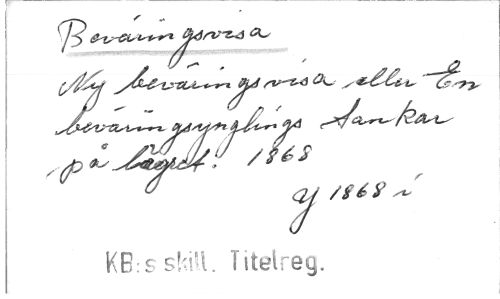 Beväringsvisa
Ny beväringsvisa eller En
beväringsynglings Tankar
på lägret. 1868
Y 1868 i
KB:s skill. Titelreg.